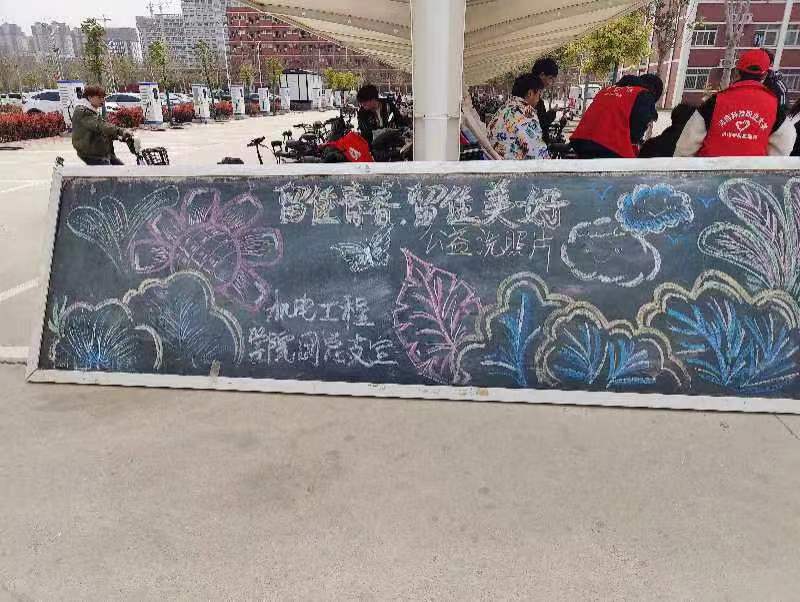 留住青春.留住美好
公益洗照片
机电工程
学院团总支宣